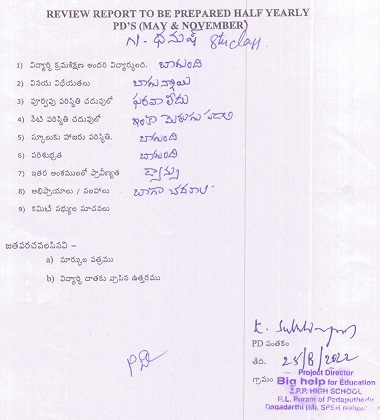 REVIEW REPORT TO BE PREPARED HALF YEARLY
PD'S (MAY & NOVEMBER)
N. ధనుష్ 8th class
1) విద్యార్థి క్రమశిక్షణ అందరి విద్యార్థులది. బాగుంది
2) వినయ విధేయతలు బాగున్నాయి
3) పూర్వపు పరిస్థితి చదువులో పరవాలేదు
4) నేటి పరిస్థితి చదువులో ఇంకా మెరుగు పడాలి
5) స్కూలుకు హాజరు పరిస్థితి. బాగుంది
6) పరిశుభ్రత బాగుంది
7) ఇతర అంశములలో ప్రావీణ్యత డ్రాన్సు
8) అభిప్రాయాలు / సలహాలు బాగా చదవాలి
9) కమిటీ సభ్యుల సూచనలు
జతపరచవలసినవి –
a) మార్కుల పత్రము
b) విద్యార్థి దాతకు వ్రాసిన ఉత్తరము
PD సంతకం
తేది. 25/8/2022
గ్రామం
Project Director
Big help for Education
Z.P.P. HIGH SCHOOL
R.L. Puram of Pedaputhedu
Dagadarthi (M), SPSR Nellore